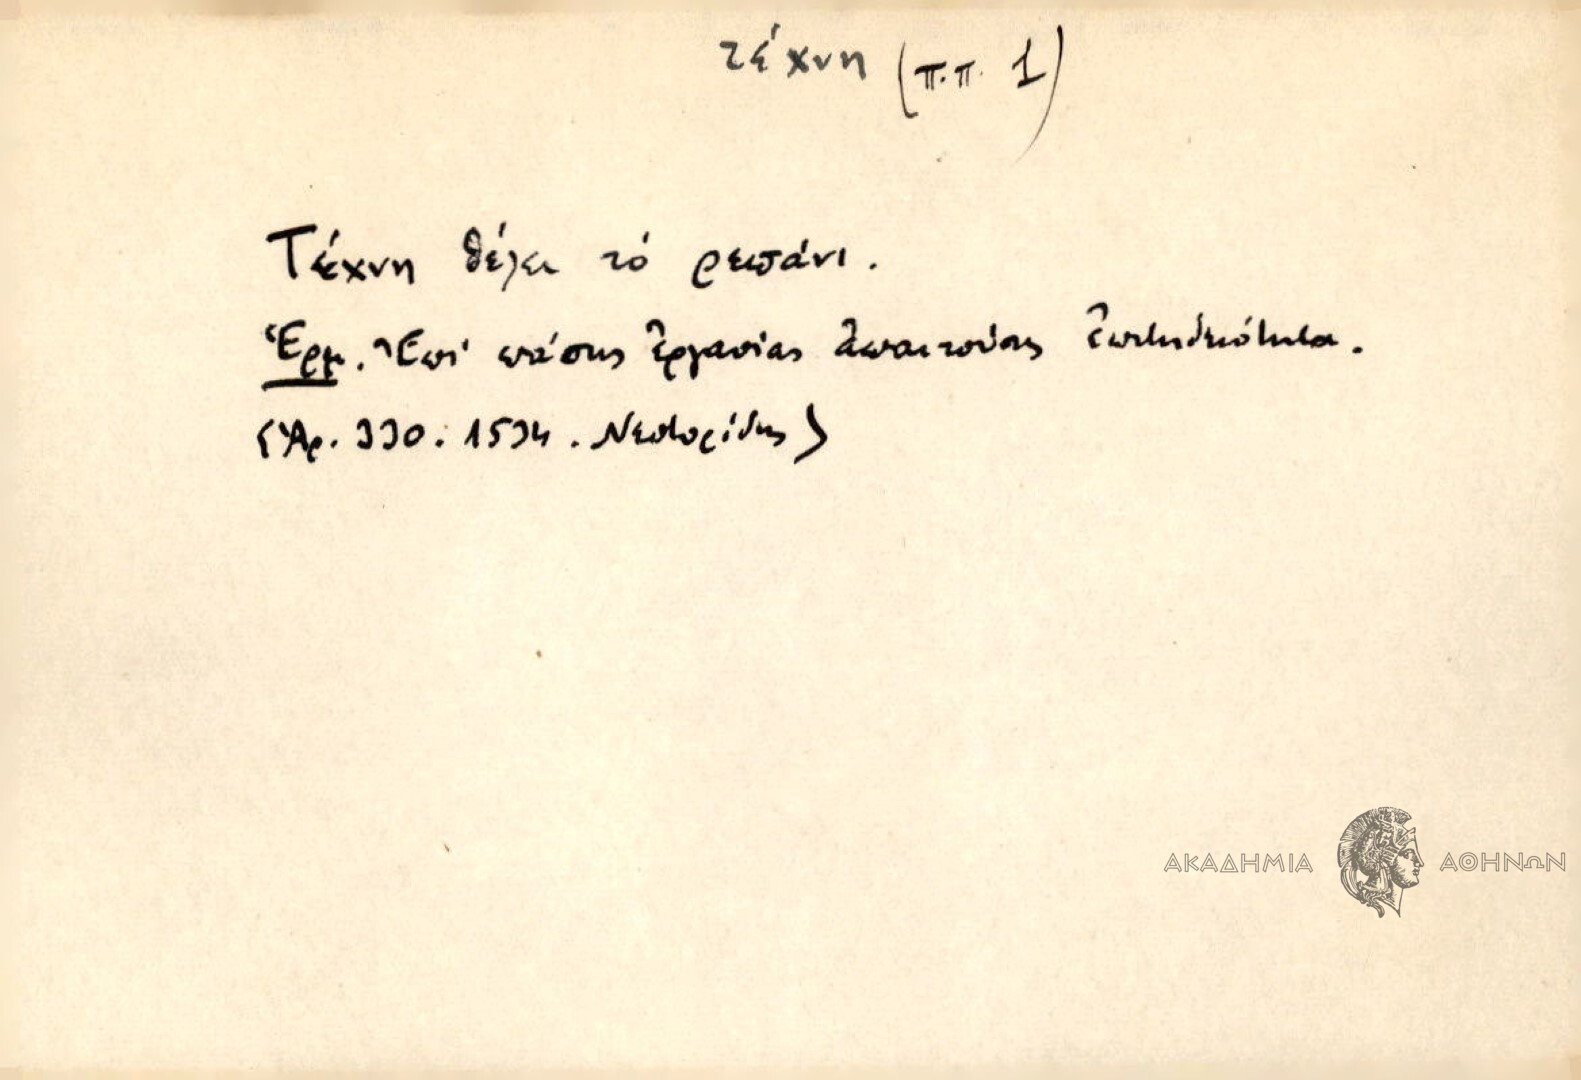 τέχνη (π.π. 1)
Τέχνη θέλει τό ρεπάνι.
Ἑρμ. Ἐπί πάσης ἐργασίας ἀπαιτούσης ἐπιτηδειότητα.
(Ἀρ. 330. 1534. Νεστορίδης)
ΑΚΑΔΗΜΙΑ ΑΘΗΝΩΝ